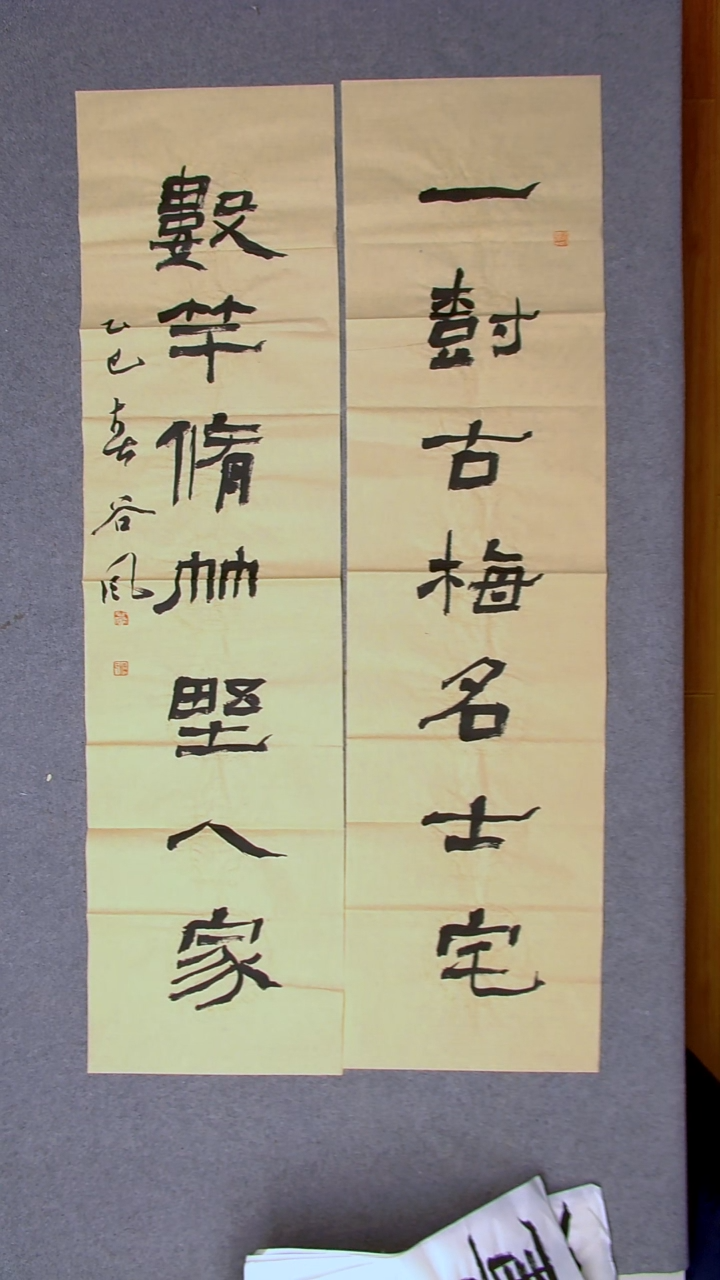 一樹古梅名士宅
數竿脩竹野人家
乙巳春谷风